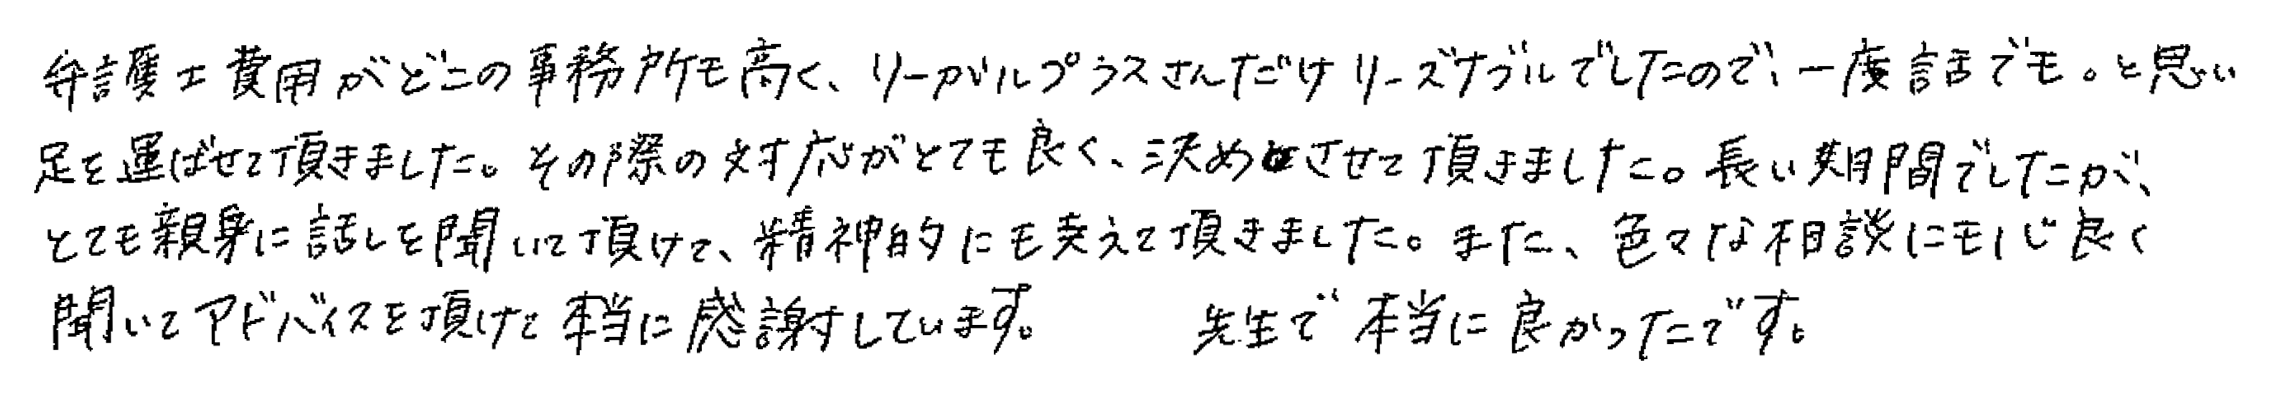 弁護士費用がどこの事務所も高く、リーガルプラスさんだけリーズナブルでしたので、一度話でも。と思い
足を運ばせて頂きました。その際の対応がとても良く、決めさせて頂きました。長い期間でしたが、
とても親身に話しを聞いて頂けて、精神的にも支えて頂きました。また、色々な相談にも心良く
聞いてアドバイスを頂けて本当に感謝しています。 先生で本当に良かったです。